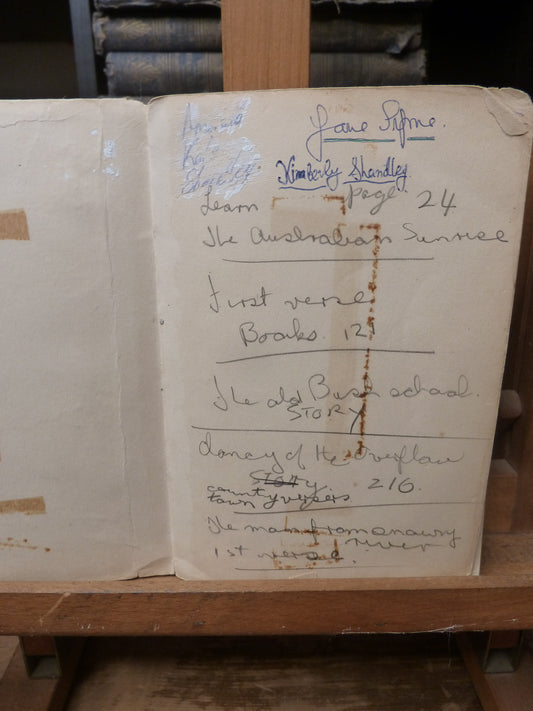 Jane
Kimberly Shandley
Learn page 24
The Australian Sunrise
First verse
Books. 121
The old Bush school.
STORY
clancy of the overflow
STORY. 216.
country versers
town
The man from snowy
river
1st verse.